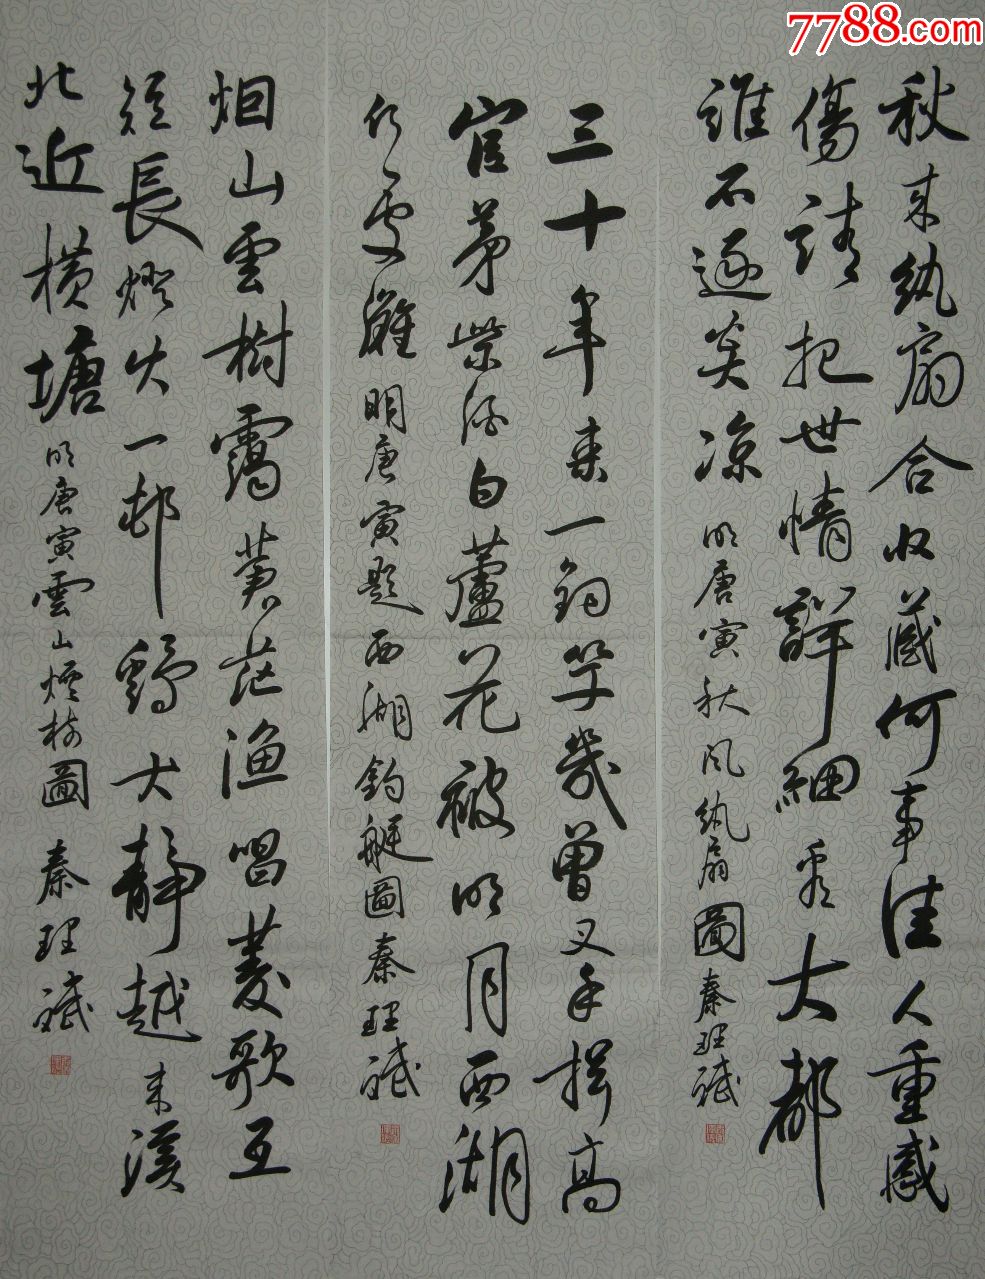 7788.com
秋来紈扇合收藏何事佳人重感
傷請把世情詳細看大都
誰不逐炎凉 明唐寅秋风紈扇圖秦理斌
三十年来一钓竿幾曾叉手揖高
官茅柴酒白蘆花被明月西湖
何处灘 明唐寅题西湖钓艇圖秦理斌
烟山雲樹靄蒼茫渔唱菱歌互
短長燈火一邨鷄犬靜越来溪
北近横塘 明唐寅雲山煙树圖 秦理斌